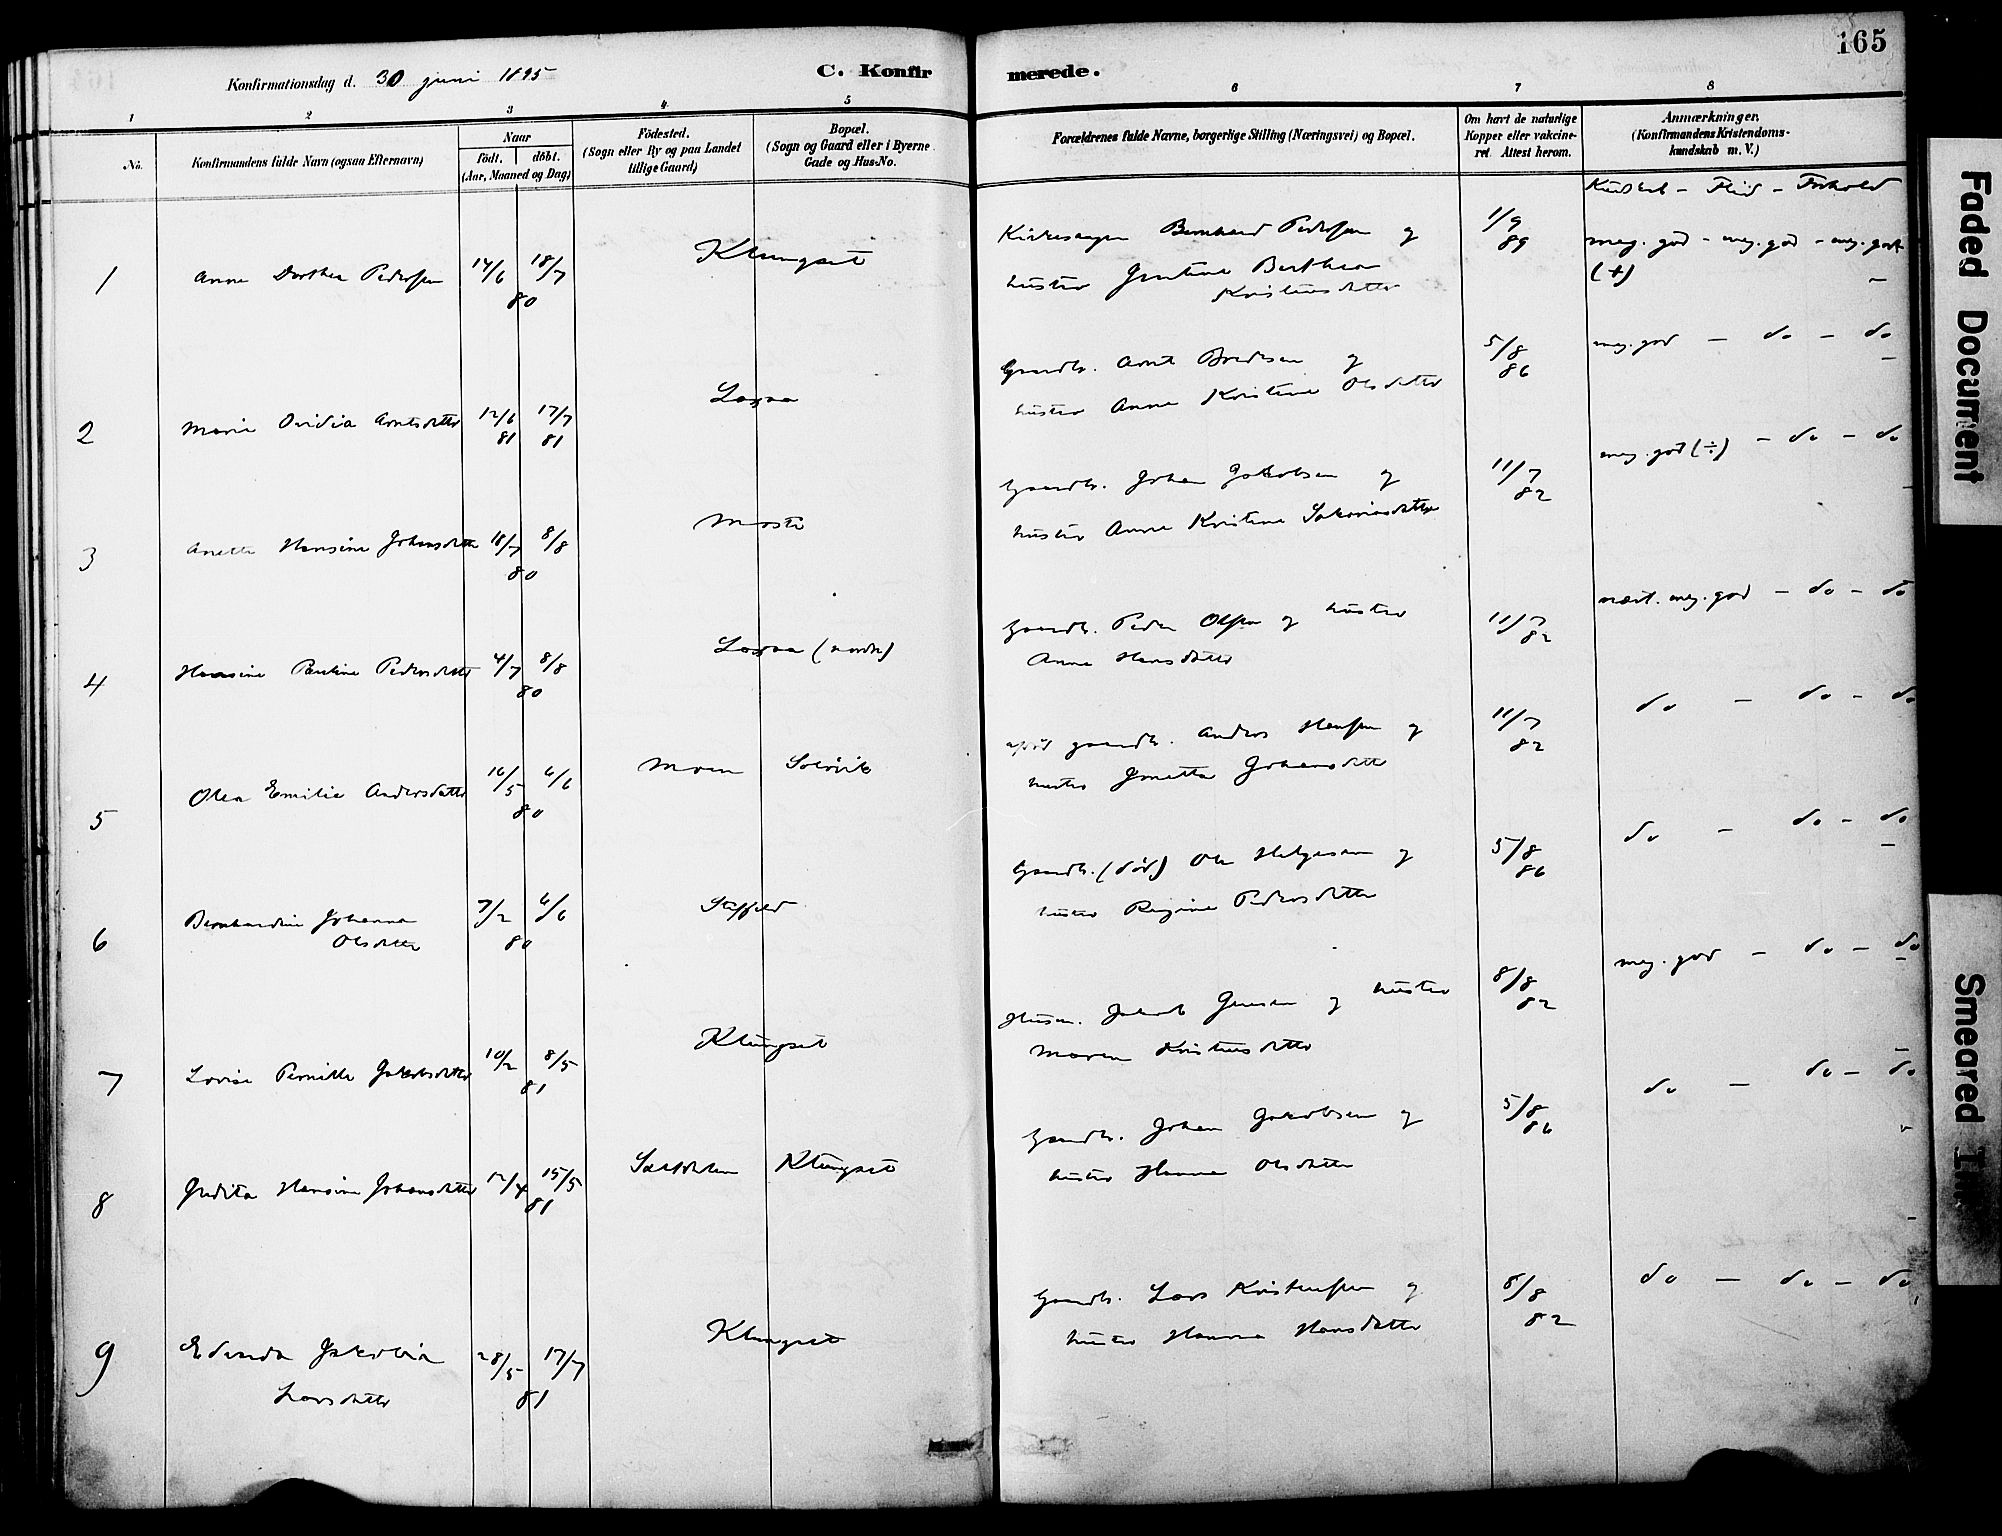 165
Konfirmationsdag d. 30 juni 1895
C. Konfirmerede.
1 2 3 4 5 6 7 8
No.
Konfirmandens fulde Navn (ogsaa Efternavn)
Naar
födt. döbt.
(Aar, Maaned og Dag)
Födested.
(Sogn eller By og paa Landet
tillige Gaard)
Bopæl.
(Sogn og Gaard eller i Byerne
Gade og Hus-No.
Forældrenes fulde Navne, borgerlige Stilling (Næringsvei) og Bopæl.
Om havt de naturlige
Kopper eller vakcine-
ret. Attest herom.
Anmærkninger.
(Konfirmandens Kristendoms-
kundskab m. V.)
Kundsk - Flid - Forhold
1 Anna Dorthea Pedersen 14/6 18/7 80 Klungset
Kirkesanger Bernhard Pedersen og
hustru Berthea
Kristensdatter
1/9 89
meg. god - meg. god - meg. godt
(+)
2 Marie Ovidia Arntsdatter 12/6 81 17/7 81
Gaardbr. Arnt og
hustru Anna Kristine Olsdatter
5/8 86
meg. god - do - do
3 Anette Hansine Johansdatter 18/7 8/8 80
Gaardbr. Johan Jakobsen og
hustru Anne Kristine
11/7 82
meg. god (÷) - do - do
4 Hansine Pauline Pedersdatter 4/7 8/8 80
Gaardbr. Peder Olsen og hustru
Anne Hansdatter
11/7 82
næst. meg. god - do - do
5 Olea Emilie Andersdatter 16/5 6/6 80 Moen
gaardbr. Anders Hansen og
hustru Johansdatter
11/7 82
do - do - do
6 Bernhardine Johanna
Olsdatter
7/2 6/6 80
Gaardbr. (död) Ole Helgesen og
hustru Regine Pedersdatter
5/8 86
do - do - do
7 Lovise Pernille Jakobsdatter 10/2 8/5 81 Klungset
Husm. Jakob Jensen og hustru
Maren Kristensdatter
8/8 82
meg. god - do - do
8 Hansine Johansdatter 12/4 15/5 81 Klungset
Gaardbr. Johan Jakobsen og
hustru Hanna Olsdatter
5/8 86
do - do - do
9 Edvarda Jakobia
Larsdatter
28/5 17/7 81 Klungset
Gaardbr. Lars Kristensen og
hustru Hanna Hansdatter
8/8 82
do - do - do
Faded Document
Smeared Ink